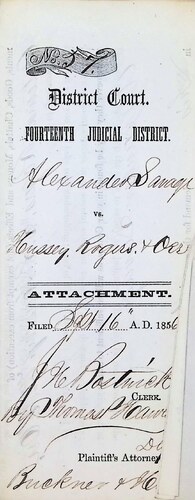 No. 57.
District Court.
FOURTEENTH JUDICIAL DISTRICT.
Alexander Savage
vs.
Hussey, Rogers. & Oc
ATTACHMENT.
FILED 16" A. D. 1856
J H Bostwick
CLERK.
By Thomas P. Hawl
De
Plaintiff's Attorney
Buckner & H